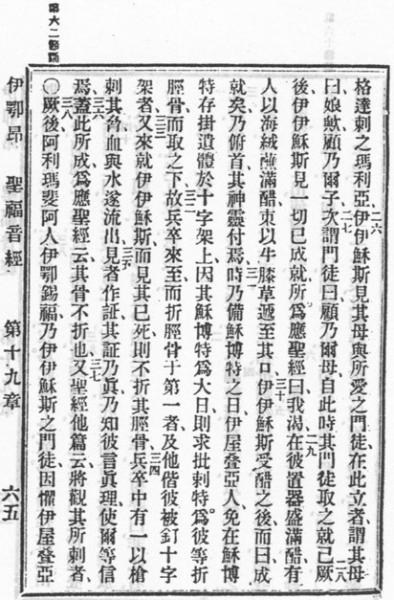 格達剌之瑪利亞、二六伊伊穌斯見其母與所愛之門徒在此立者、謂其母
曰娘歟顧乃爾子、二七次謂門徒曰顧乃爾母、自此時其門徒取之就己、二八厥
後伊伊穌斯見一切已成就所爲應聖經曰我渴、二九在彼置器盛滿醋、有
人以海絨蘸滿醋、束以牛膝草、遞至其口、三十伊伊穌斯受醋之後而曰成
就矣、乃俯首其神靈付焉、三一時乃備穌博特之日、伊屋叠亞人、免在穌博
特存掛遺體於十字架上、因其穌博特爲大日、則求批剌特爲彼等折
脛骨而取之下、三二故兵卒來至而折脛骨于第一者及他偕彼被釘十字
架者、三三又來就伊伊穌斯而見其已死、則不折其脛骨、三四兵卒中有一以槍
刺其脅、血與水遂流出、三五見者作証、其証乃眞、乃知彼言眞理、使爾等信
焉、三六蓋此所成爲應聖經云其骨不折也、三七又聖經他篇云將觀其所刺者、
〇三八厥後阿利瑪斐阿人伊鄂錫福、乃伊伊穌斯之門徒、因懼伊屋叠亞
伊鄂昂　聖福音經　第十九章　六五